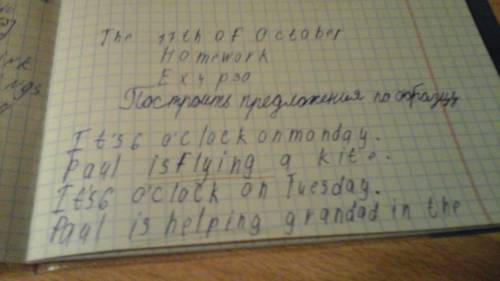 The 17th of October
Homework
Ex 4 p 30
Построить предложения по образцу
It's 6 o'clock on monday.
Paul is flying a kite.
It's 6 o'clock on Tuesday.
Paul is helping grandad in the